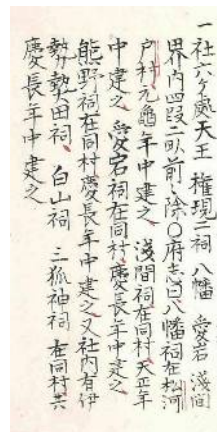 一社六ヶ所天王 権現二祠 八幡 愛宕 淺間
界内四段二畝前々除〇府志曰八幡祠在松河
戸村元亀年中建之 淺間祠在同村天正年
中建之 愛宕祠在同村慶長年中建之
熊野祠在同村慶長年中建之又社内有伊
勢熱田祠 白山祠 三狐神祠 在同村共
慶長年中建之